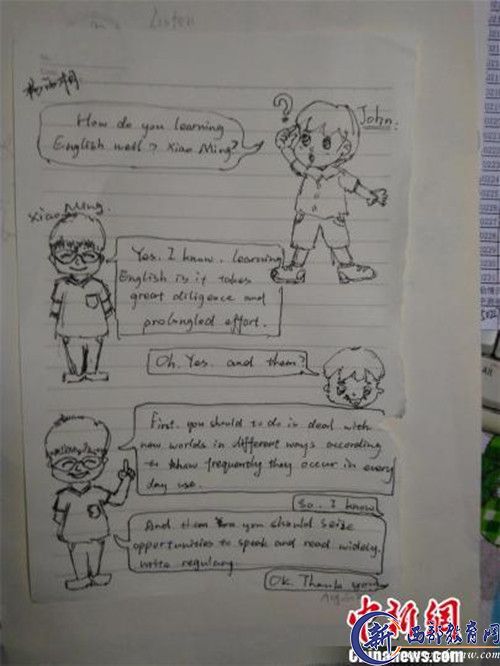 Listen
John.
How do you learning
English well, Xiao Ming?
Xiao Ming.
Yes. I know. learning
English is it takes
great diligence and
prolongled effort.
Oh. Yes. and them?
First. you should to do is deal with
new worlds in different ways according
to how frequently they occur in every
day use.
So. I know
And them you should seize
opportunities to speak and read widely.
write regulary
Ok. Thank you
中新網
Chinanews.com
新 西部教育网
0222
0223
0224
0225
0226
0227
0228
0229
0230
Alt